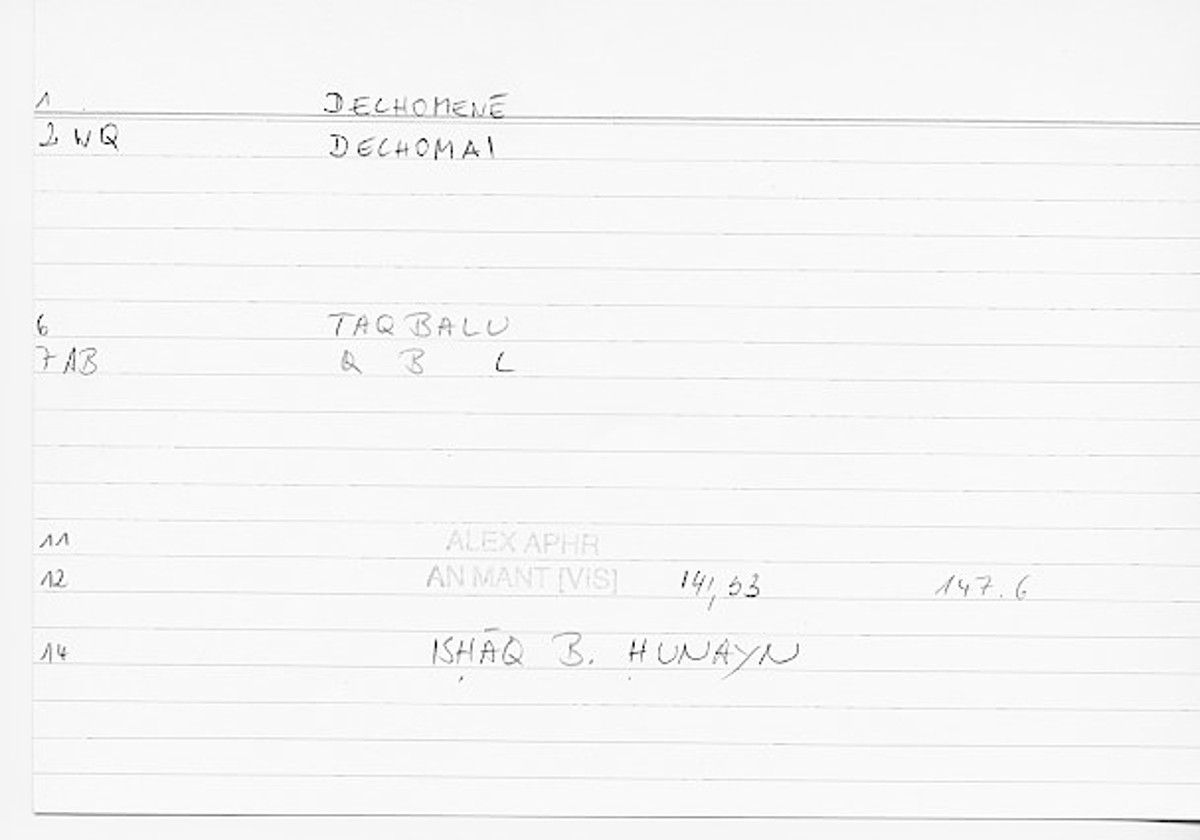 1 DECHOMENĒ
2 WQ DECHOMAI
6 TAQBALU
7 AB Q B L
11 ALEX APHR
12 AN MANT [VIS] 141,33 147.6
14 ISḤĀQ B. ḤUNAYN